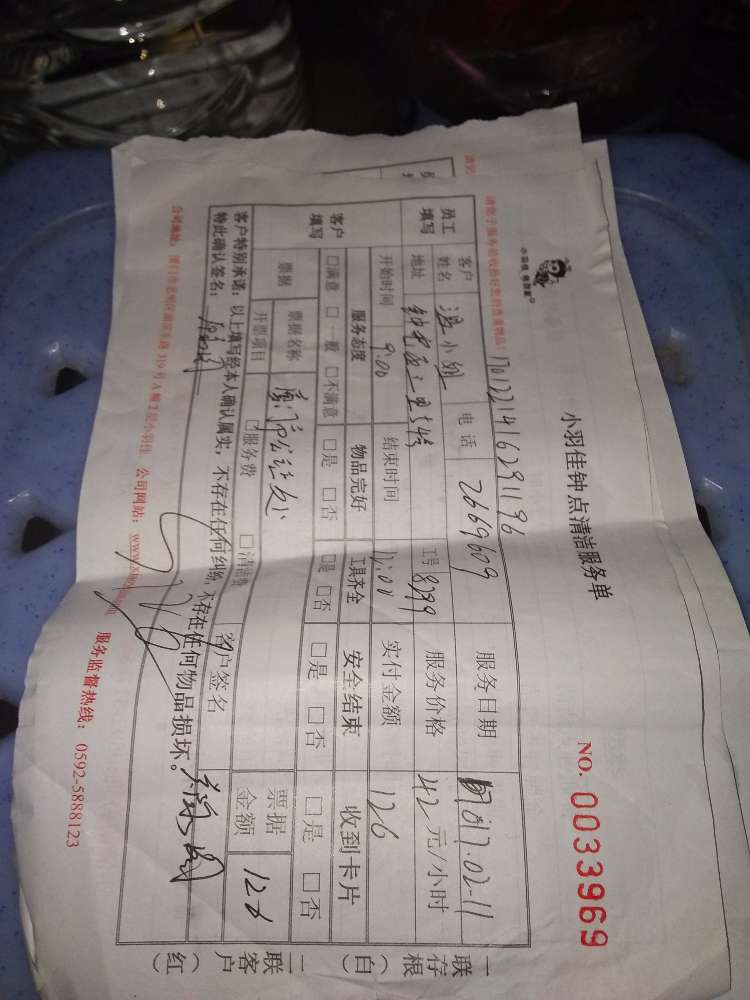 小羽佳钟点清洁服务单
NO. 0033969
小羽佳 电话
请您于服务验收前好您的贵重物品! 170122141629 1196
员工填写 客户姓名 小姐 电话 2669609 服务日期 2017.02-11
地址 工号 8299 服务价格 42 元/小时
开始时间 9:00 结束时间 12:00 实付金额 126
客户填写 服务态度 物品完好 工具齐全 安全结束 收到卡片
□满意 □一般 □不满意 □是 □否 □是 □否 □是 □否 □是 □否
票据 票据名称 厦门 票据金额 126
开票项目 □服务费 □清洁费 客户签名
客户特别承诺:以上填写经本人确认属实,不存在任何纠纷,不存在任何物品损坏。
特此确认签名:
公司地址:厦门市思明区湖滨东路319号A幢2层小羽佳 公司网站:www.
服务监督热线:0592-5888123
一联存根(白)
一联客户(红)